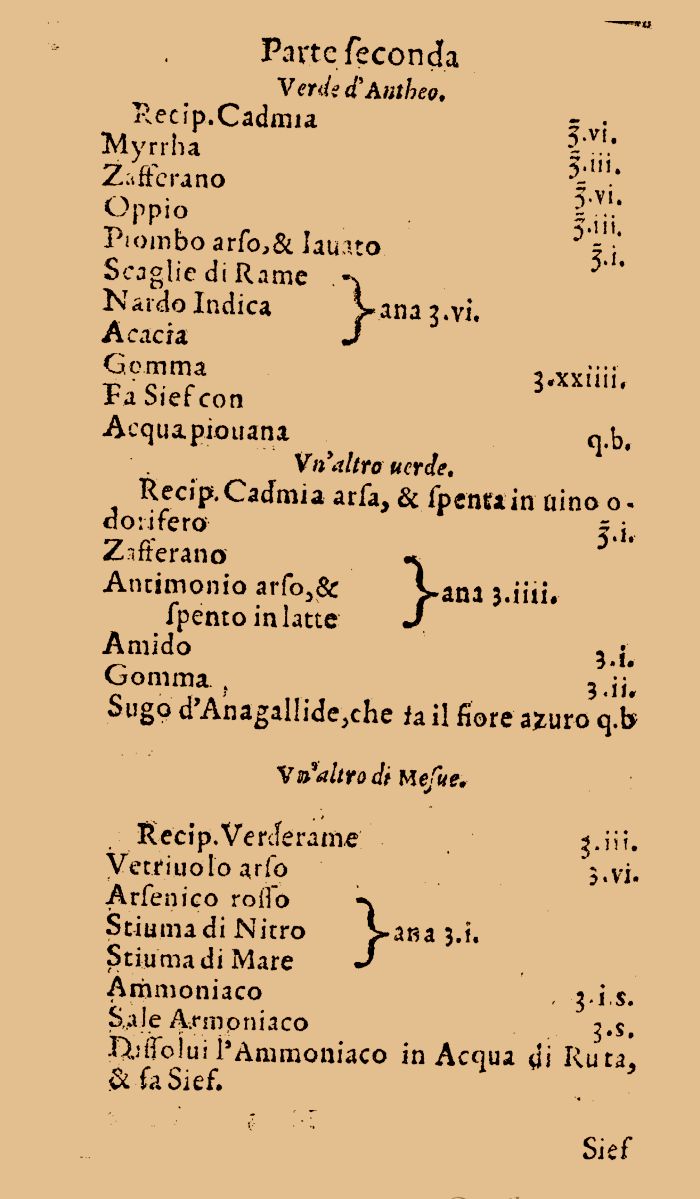 Parte ſeconda
Verde d'Antheo.
Recip. Cadmia ℥.vi.
Myrrha ℥.iii.
Zafferano ℥.vi.
Oppio ℥.iii.
Piombo arſo, & lauato ℥.i.
Scaglie di Rame
Nardo Indica } ana ʒ.vi.
Acacia
Gomma ʒ.xxiiii.
Fa Sief con
Acqua piouana q.b.
Vn'altro uerde.
Recip. Cadmia arſa, & ſpenta in uino o-
dorifero ℥.i.
Zafferano
Antimonio arſo, & } ana ʒ.iiii.
ſpento in latte
Amido ʒ.i.
Gomma ʒ.ii.
Sugo d'Anagallide, che fa il fiore azuro q.b
Vn'altro di Meſue.
Recip. Verderame ʒ.iii.
Vetriuolo arſo ʒ.vi.
Arſenico roſſo
Stiuma di Nitro } ana ʒ.i.
Stiuma di Mare
Ammoniaco ʒ.i.s.
Sale Armoniaco ʒ.s.
Diſſolui l'Ammoniaco in Acqua di Ruta,
& fa Sief.
Sief